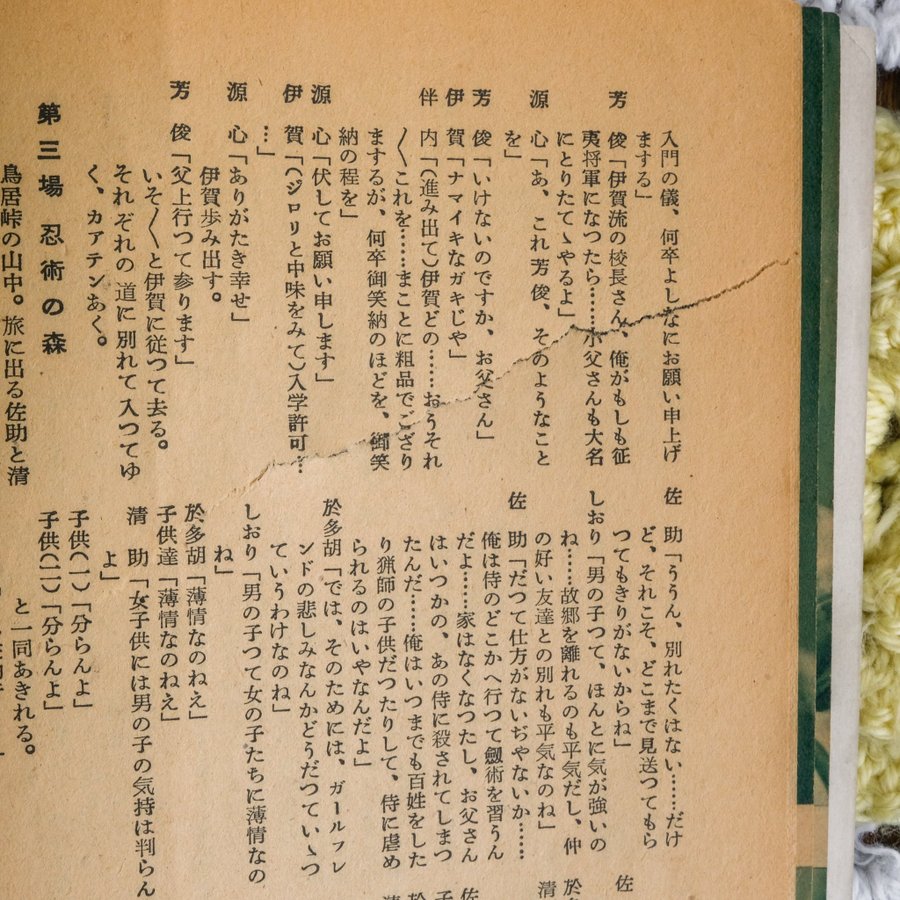 入門の儀、何卒よしなにお願い申上げ
まする」
芳　俊「伊賀流の校長さん、俺がもしも征
夷将軍になつたら……小父さんも大名
にとりたてゝやるよ」
源　心「あ、これ芳俊、そのようなこと
を」
芳　俊「いけないのですか、お父さん」
伊　賀「ナマイキなガキじや」
伴　内「(進み出て)伊賀どの……おうそれ
〱これを……まことに粗品でござり
まするが、何卒御笑納のほどを、御笑
納の程を」
源　心「伏してお願い申します」
伊　賀「(ジロリと中味をみて)入学許可…
…」
源　心「ありがたき幸せ」
伊賀歩み出す。
芳　俊「父上行つて参ります」
いそ〱と伊賀に従つて去る。
それぞれの道に別れて入つてゆ
く、カアテンあく。
第三場　忍術の森
鳥居峠の山中。旅に出る佐助と清
佐　助「ううん、別れたくはない……だけ
ど、それこそ、どこまで見送つてもら
つてもきりがないからね」
しおり「男の子つて、ほんとに気が強いの
ね……故郷を離れるのも平気だし、仲
の好い友達との別れも平気なのね」
佐　助「だつて仕方がないぢやないか……
俺は侍のどこかへ行つて劔術を習うん
だよ……家はなくなつたし、お父さん
はいつかの、あの侍に殺されてしまつ
たんだ……俺はいつまでも百姓をした
り猟師の子供だつたりして、侍に虐め
られるのはいやなんだよ」
於多胡「では、そのためには、ガールフレ
ンドの悲しみなんかどうだつていゝつ
ていうわけなのね」
しおり「男の子つて女の子たちに薄情なの
ね」
於多胡「薄情なのねえ」
子供達「薄情なのねえ」
清　助「女子供には男の子の気持は判らん
よ」
子供(一)「分らんよ」
子供(二)「分らんよ」
と一同あきれる。
佐
於
清
佐
子
於